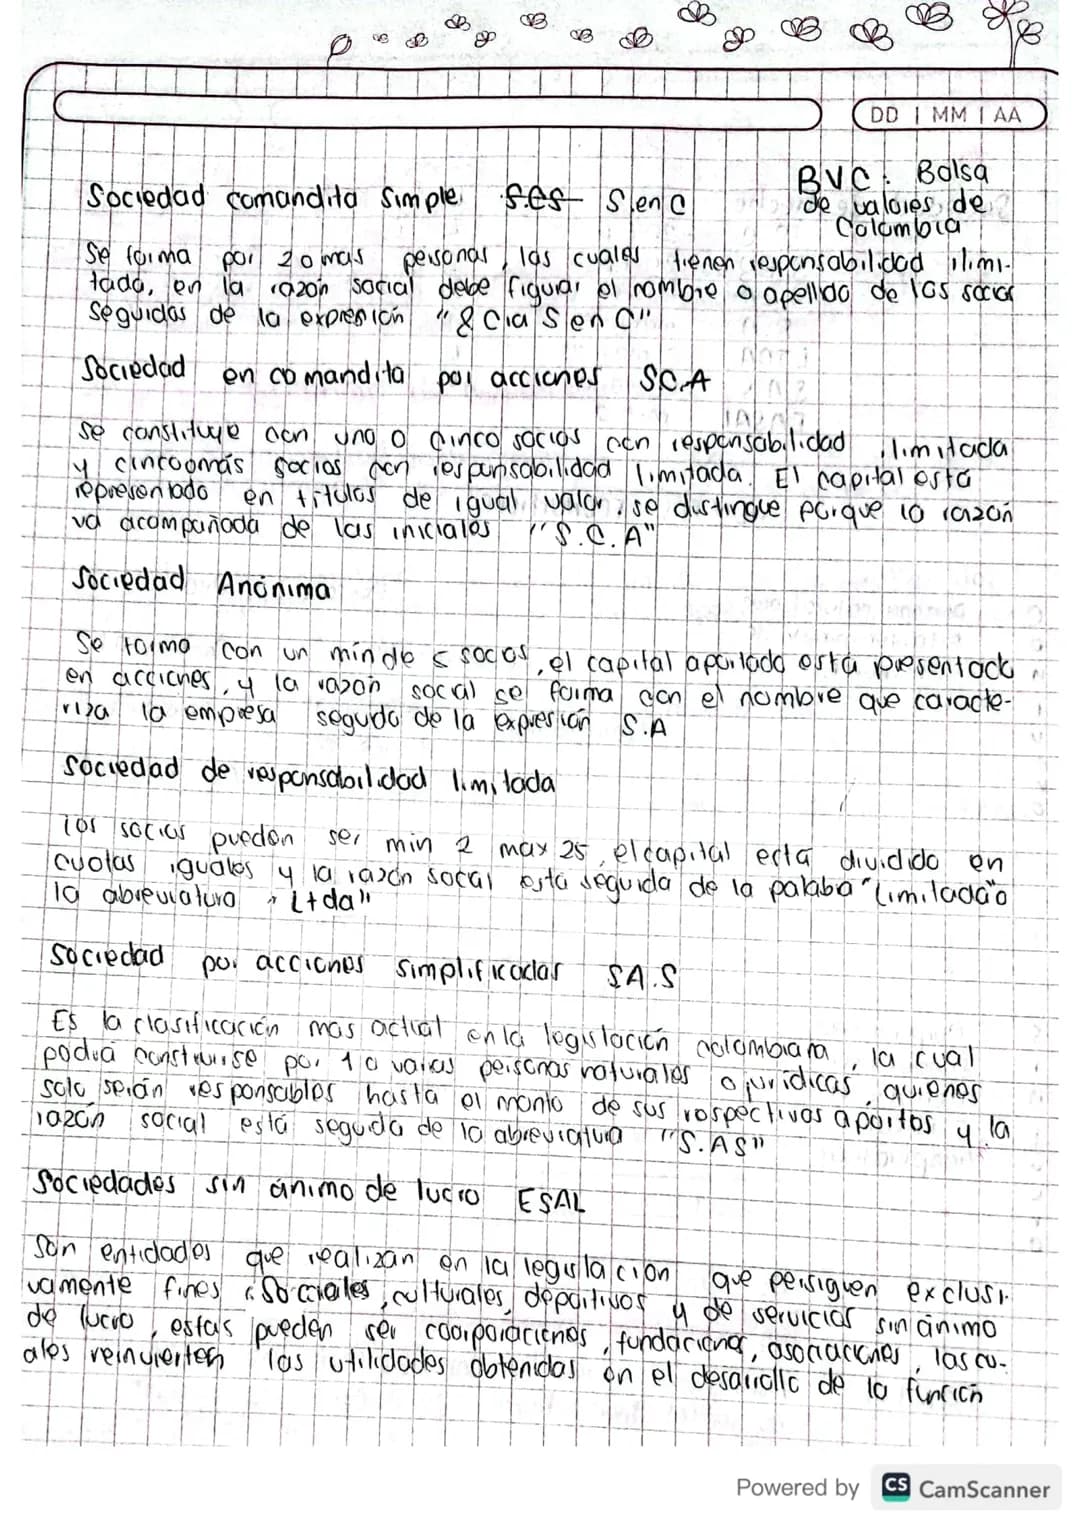 DD | MM | AA
BVC: Bolsa
de valores de
Colombia
Sociedad comandita Simple S.es S.en C
Se forma por 2 o mas personas, las cuales tienen responsabilidad ilimi-
tada, en la razón social debe figurar el nombre o apellido de los socios
Seguidos de la expresión "& Cia S en C"
Sociedad en comandita por acciones S.C.A
Se constituye con uno o cinco socios con responsabilidad ilimitada
y cinco o más socios con responsabilidad limitada. El capital esta
representado en titulos de igual valor, se distingue porque la razón
va acompañada de las iniciales "S.C.A"
Sociedad Anónima
Se forma con un min de 5 socios, el capital aportado está presentado
en acciones, y la razón social se forma con el nombre que caracte-
riza la empresa seguida de la expresión S.A
Sociedad de responsabilidad limitada
los socios pueden ser min 2 max 25, el capital está dividido en
cuotas iguales y la razón social esta seguida de la palaba "Limitada" o
la abreviatura "Ltda"
Sociedad por acciones simplificadas S.A.S
Es la clasificación mas actual en la legislación colombiana, la cual
podrá construirse por 1 o varias personas naturales o juridicas, quienes
solo serán responsables hasta el monto de sus respectivos aportes y la
razón social está seguida de la abreviatura "S.AS"
Sociedades sin ánimo de lucro ESAL
Son entidades que realizan en la legislacion que persiguen exclusi-
vamente fines sociales, culturales, deportivos y de servicios sin ánimo
de lucro, estas pueden ser coorporaciones, fundaciones, asociaciones, las cu-
ales reinvierten las utilidades obtenidas en el desarrollo de la función
Powered by CS CamScanner